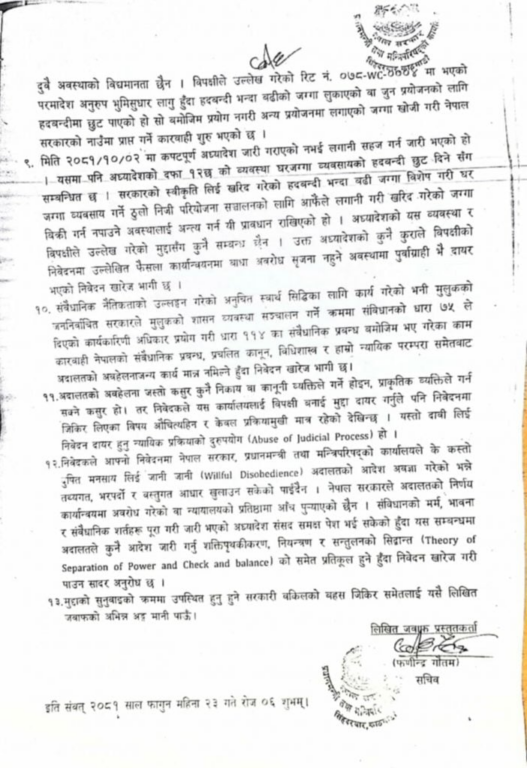 दुबै अवस्थाको विद्यमानता छैन । विपक्षीले उल्लेख गरेको रिट नं. ०७८-WC-०००४ मा भएको
परमादेश अनुरुप भुमिसुधार लागु हुँदा हदबन्दी भन्दा बढीको जग्गा लुकाएको वा जुन प्रयोजनको लागि
हदबन्दीमा छुट पाएको हो सो बमोजिम प्रयोग नगरी अन्य प्रयोजनमा लगाएको जग्गा खोजी गरी नेपाल
सरकारको नाउँमा प्राप्त गर्ने कारवाही शुरु भएको छ ।
९. मिति २०८१/१०/०२ मा कपटपूर्ण अध्यादेश जारी गराएको नभई लगानी सहज गर्न जारी भएको हो
। यसमा पनि अध्यादेशको दफा १२ख को व्यवस्था घरजग्गा व्यवसायको हदबन्दी छुट दिने सँग
सम्बन्धित छ । सरकारको स्वीकृति लिई खरिद गरेको हदबन्दी भन्दा बढी जग्गा विशेष गरी घर
जग्गा व्यवसाय गर्ने ठुलो निजी परियोजना सञ्चालनको लागि आफैले लगानी गरी खरिद गरेको जग्गा
बिक्री गर्न नपाउने अवस्थालाई अन्त्य गर्न यी प्रावधान राखिएको हो । अध्यादेशको यस व्यवस्था र
विपक्षीले उल्लेख गरेको मुद्दासँग कुनै सम्बन्ध छैन । उक्त अध्यादेशको कुनै कुराले विपक्षीको
निवेदनमा उल्लेखित फैसला कार्यान्वयनमा बाधा अवरोध सृजना नहुने अवस्थामा पुर्वाग्राही भै दायर
भएको निवेदन खारेज भागी छ ।
१०. संवैधानिक नैतिकताको उल्लङ्घन गरेको अनुचित स्वार्थ सिद्धिका लागि कार्य गरेको भनी मुलुकको
जननिर्वाचित सरकारले मुलुकको शासन व्यवस्था सञ्चालन गर्ने क्रममा संविधानको धारा ७५ ले
दिएको कार्यकारिणी अधिकार प्रयोग गरी धारा ११४ का संवैधानिक प्रबन्ध बमोजिम भए गरेका काम
कारवाही नेपालको संवैधानिक प्रबन्ध, प्रचलित कानून, विधिशास्त्र र हाम्रो न्यायिक परम्परा समेतबाट
अदालतको अवहेलनाजन्य कार्य मान्न नमिल्ने हुँदा निवेदन खारेज भागी छ।
११.अदालतको अवहेलना जस्तो कसुर कुनै निकाय वा कानूनी व्यक्तिले गर्ने होइन, प्राकृतिक व्यक्तिले गर्न
सक्ने कसुर हो। तर निवेदकले यस कार्यालयलाई विपक्षी बनाई मुद्दा दायर गर्नुले पनि निवेदनमा
जिकिर लिएका विषय औचित्यहिन र केवल प्रकियामुखी मात्र रहेको देखिन्छ । यस्तो दाबी लिई
निवेदन दायर हुनु न्यायिक प्रकियाको दुरुपयोग (Abuse of Judicial Process) हो ।
१२.निवेदकले आफ्नो निवेदनमा नेपाल सरकार, प्रधानमन्त्री तथा मन्त्रिपरिषद्को कार्यालयले के कस्तो
दुषित मनसाय लिई जानी जानी (Willful Disobedience) अदालतको आदेश अवज्ञा गरेको भन्ने
तथ्यगत, भरपर्दो र वस्तुगत आधार खुलाउन सकेको पाईदैन । नेपाल सरकारले अदालतको निर्णय
कार्यान्वयमा अवरोध गरेको वा न्यायालयको प्रतिष्ठामा आँच पुर्‍याएको छैन । संविधानको मर्म, भावना
र संवैधानिक शर्तहरू पूरा गरी जारी भएको अध्यादेश संसद समक्ष पेश भई सकेको हुँदा यस सम्बन्धमा
अदालतले कुनै आदेश जारी गर्नु शक्तिपृथकीकरण, नियन्त्रण र सन्तुलनको सिद्धान्त (Theory of
Separation of Power and Check and balance) को समेत प्रतिकूल हुने हुँदा निवेदन खारेज गरी
पाउन सादर अनुरोध छ ।
१३.मुद्दाको सुनुवाइको क्रममा उपस्थित हुनु हुने सरकारी वकिलको बहस जिकिर समेतलाई यसै लिखित
जवाफको अभिन्न अङ्ग मानी पाऊँ।
लिखित जवाफ प्रस्तुतकर्ता
(फणीन्द्र गौतम)
सचिव
इति संवत् २०८१ साल फागुन महिना २३ गते रोज ०६ शुभम्।